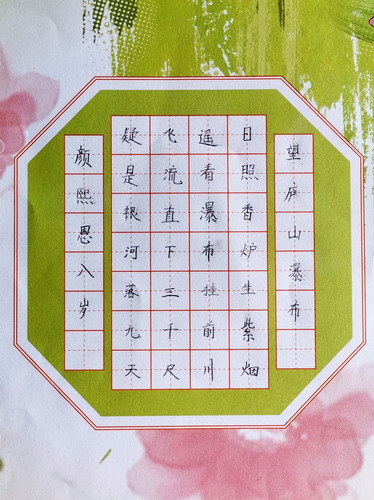 望庐山瀑布
日照香炉生紫烟
遥看瀑布挂前川
飞流直下三千尺
疑是银河落九天
颜熙恩八岁